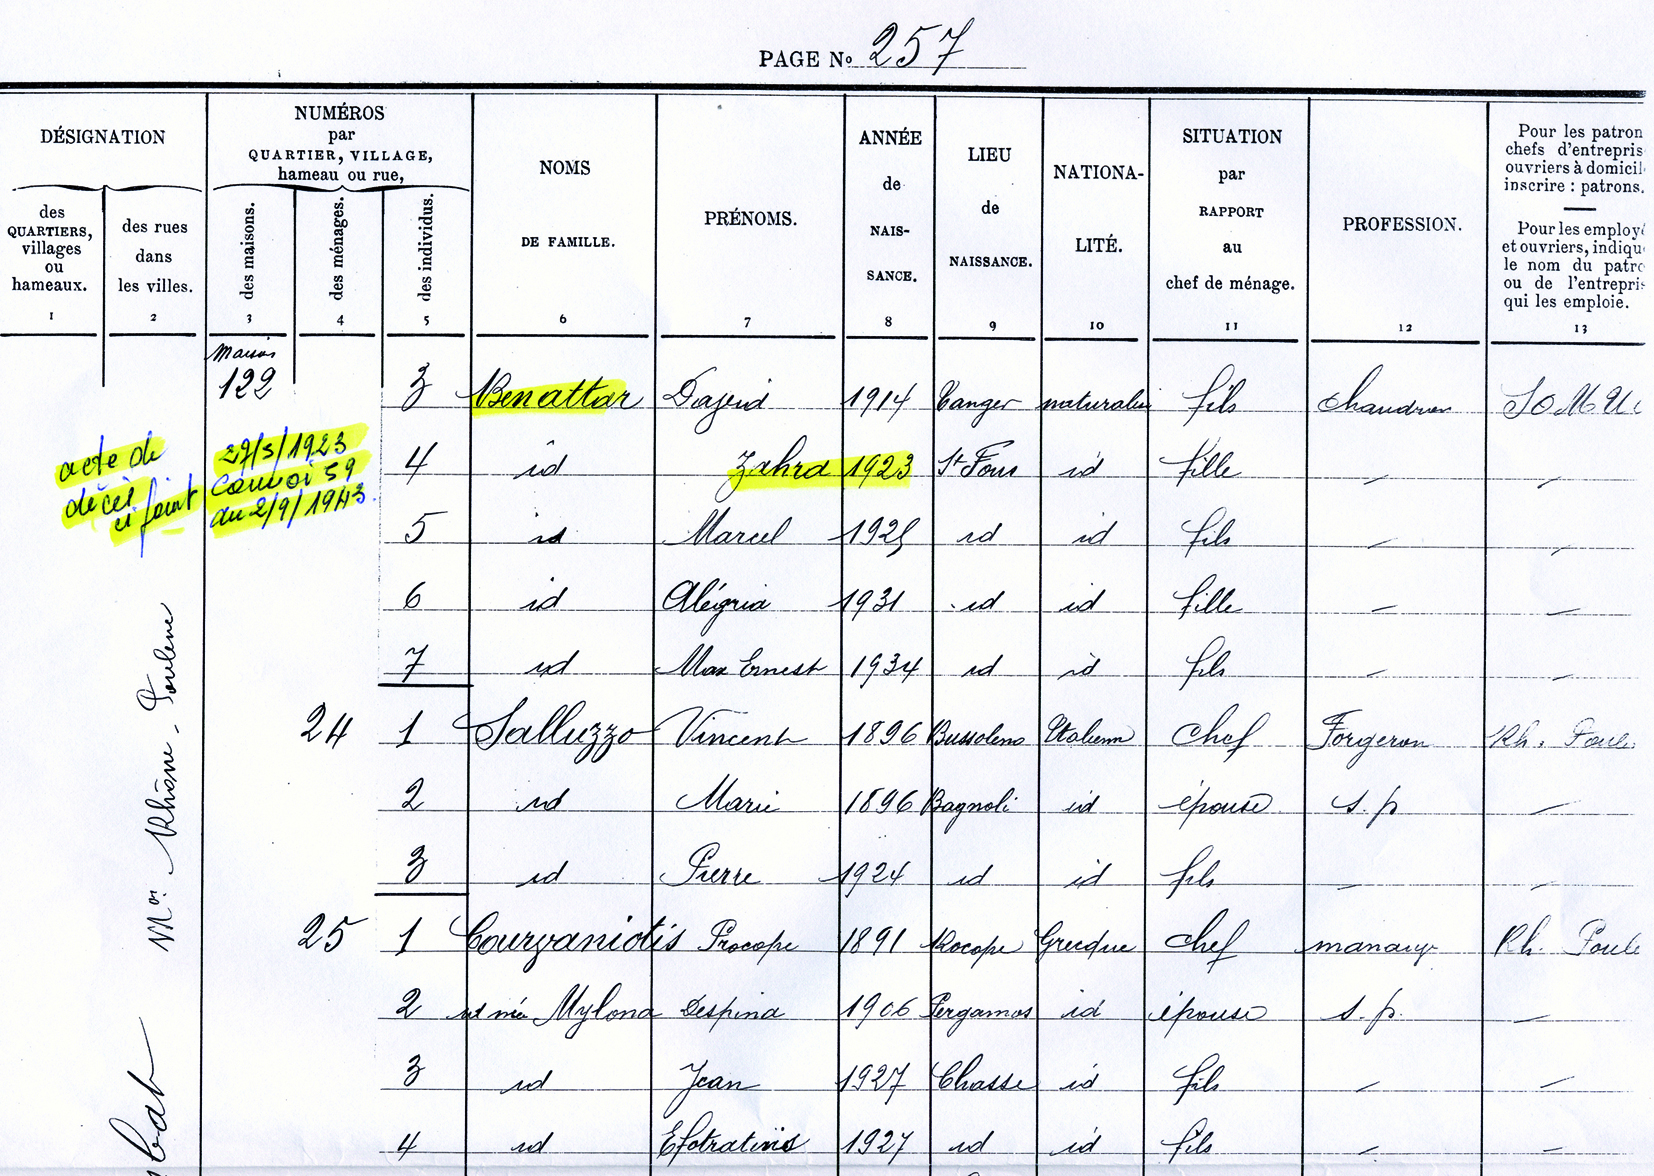 PAGE No 257
DÉSIGNATION
des QUARTIERS, villages ou hameaux.
1
des rues dans les villes.
2
NUMÉROS
par
QUARTIER, VILLAGE,
hameau ou rue,
des maisons.
3
des ménages.
4
des individus.
5
NOMS
DE FAMILLE.
6
PRÉNOMS.
7
ANNÉE
de
NAIS-
SANCE.
8
LIEU
de
NAISSANCE.
9
NATIONA-
LITÉ.
10
SITUATION
par
RAPPORT
au
chef de ménage.
11
PROFESSION.
12
Pour les patron
chefs d'entrepris
ouvriers à domicil
inscrire : patrons.
Pour les employé
et ouvriers, indiqu
le nom du patro
ou de l'entrepris
qui les emploie.
13
maison
122
3 Benattar 1914 Tanger fils SOMU
acte de
décès
ci joint
27/5/1923
convoi 59
du 2/9/1943.
4 id Zahra 1923 St Fons id fille -
5 id Marcel 1925 id id fils -
6 id Alégria 1931 id id fille -
7 id Max Ernest 1934 id id fils -
24 1 Salluzzo Vincent 1896 Bussoleno Italienne chef Forgeron Rh. Poule
2 id Marie 1896 Bagnoli id épouse s.p. -
3 id Pierre 1924 id id fils -
25 1 Courvaniotis Procope 1891 Grecque chef manœuv Rh. Poule
2 id née Mylona Despina 1906 Pergamos id épouse s.p. -
3 id Jean 1927 Chasse id fils -
4 id 1927 id id fils -
Mon Rhône-Poulenc